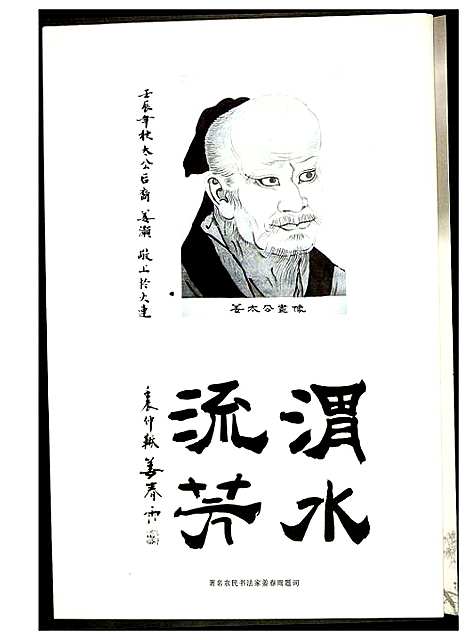 壬辰年秋太公后裔姜濑敬上於大连
姜太公画像
渭水
流芳
姜春雨
著名农民书法家姜春雨题词